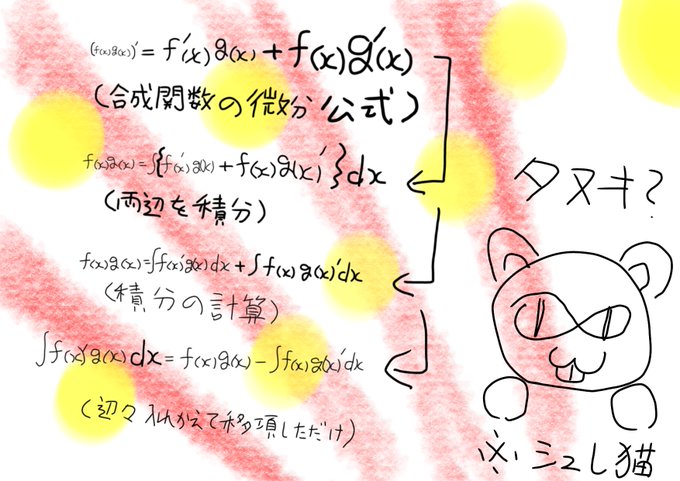 (f(x)g(x))' = f'(x)g(x) + f(x)g'(x)
(合成関数の微分公式)
f(x)g(x) = ∫{f(x)'g(x) + f(x)g(x)'}dx
(両辺を積分)
f(x)g(x) = ∫f(x)'g(x)dx + ∫f(x)g(x)'dx
(積分の計算)
∫f(x)'g(x)dx = f(x)g(x) - ∫f(x)g(x)'dx
(辺々入れかえて移項しただけ)
タヌキ?
※シュレ猫